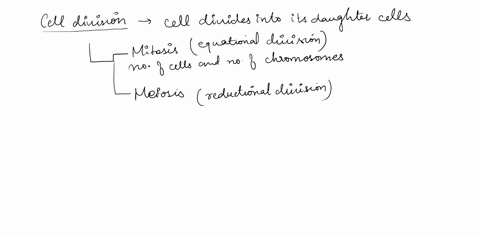 Cell division → cell divides into its daughter cells
Mitosis (equational division)
no. of cells and no. of chromosomes
Meiosis (reductional division)